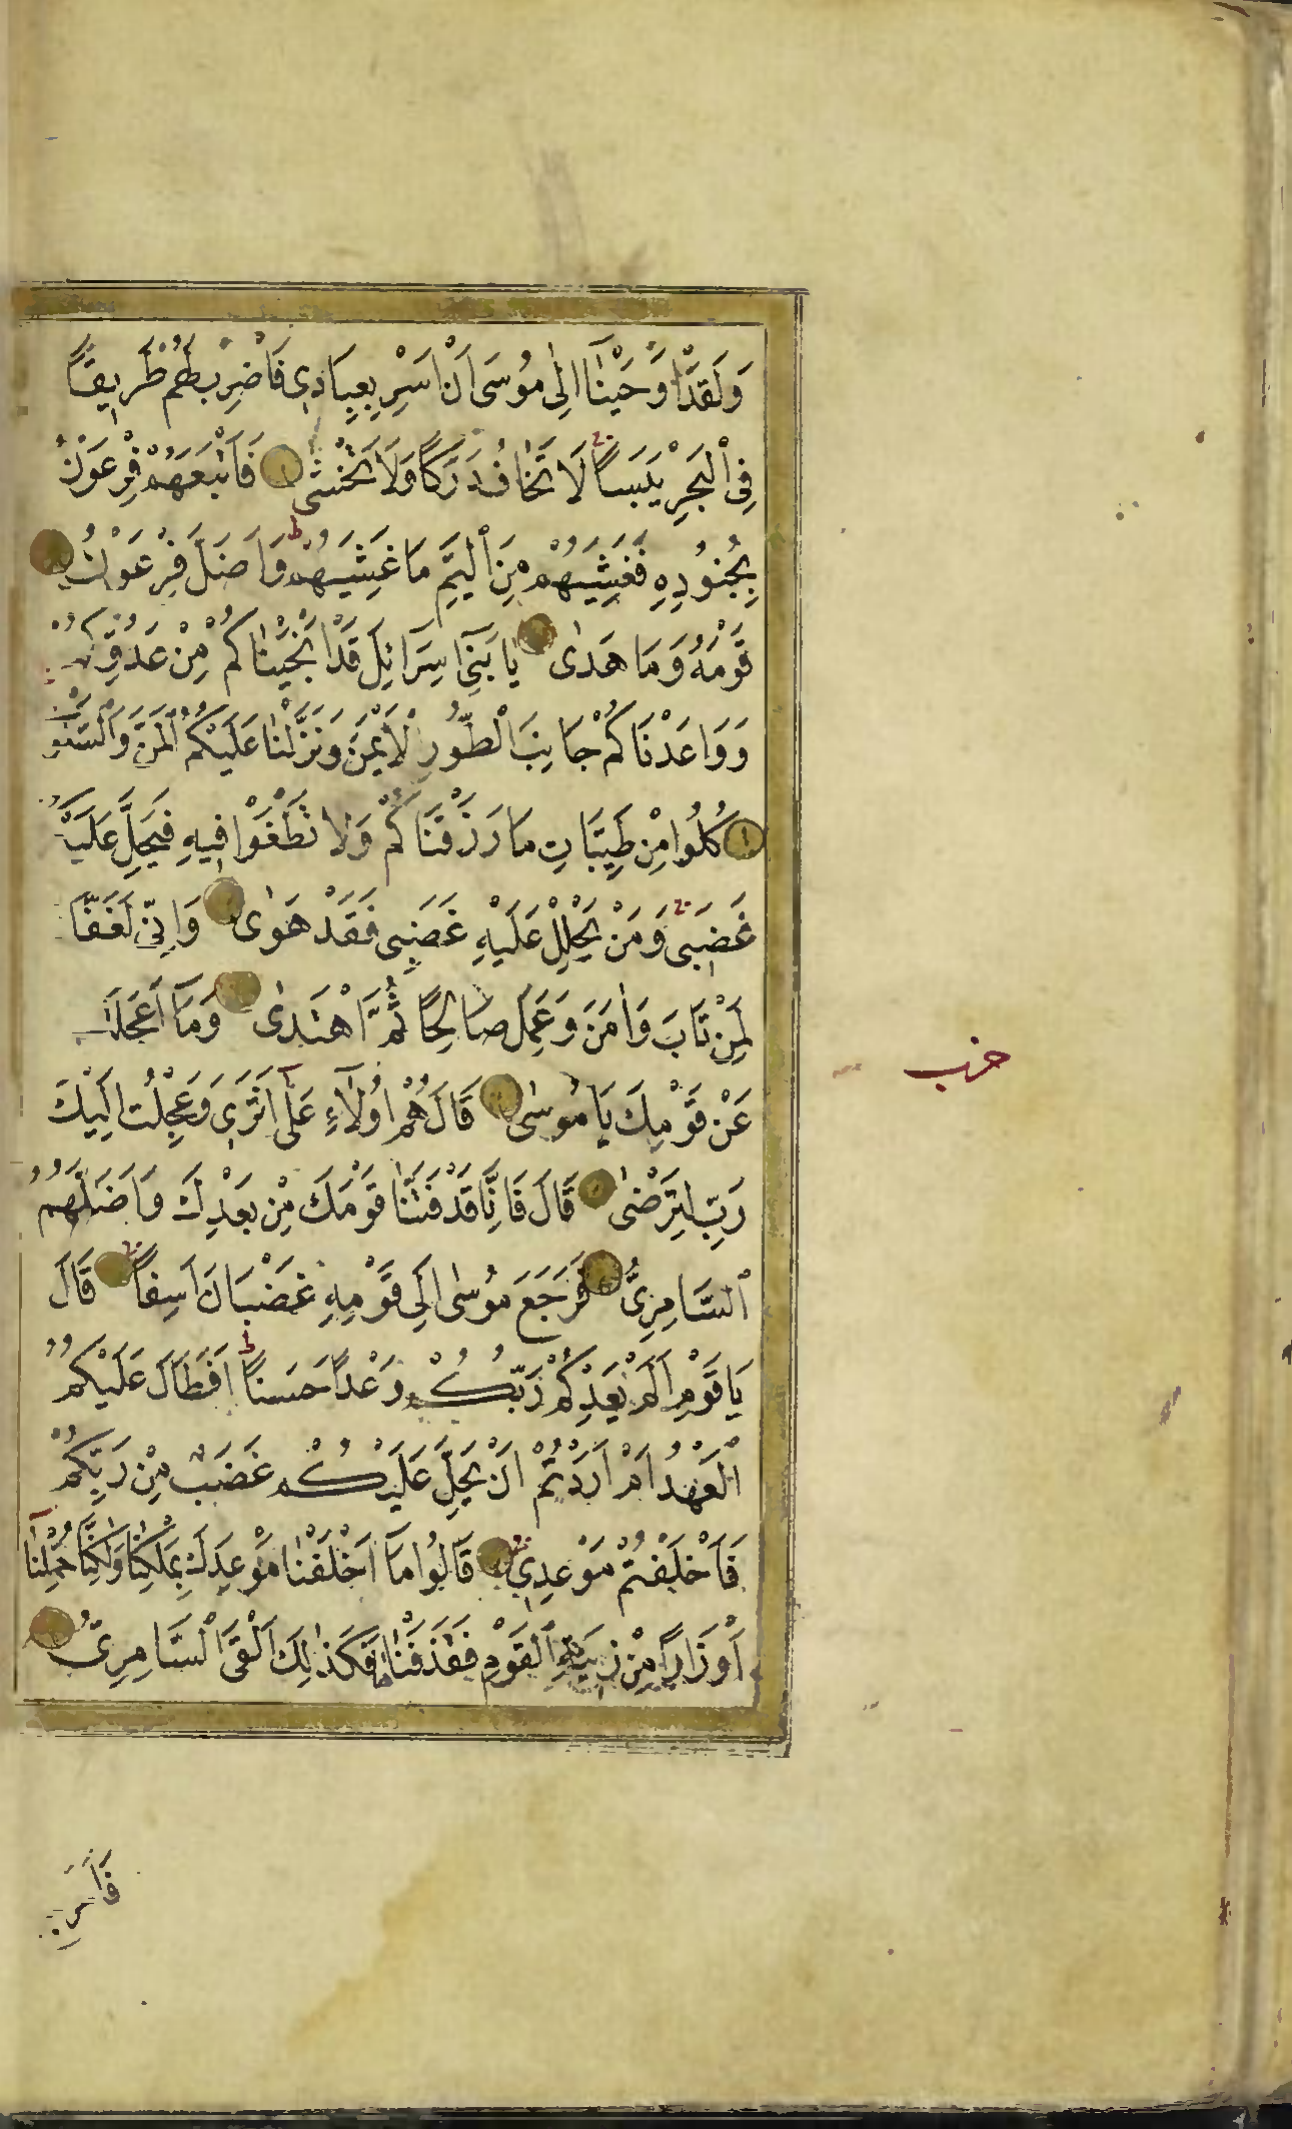 وَلَقَدْ اَوْحَيْنَٓا اِلٰى مُوسٰٓى اَنْ اَسْرِ بِعِبَادِى فَاضْرِبْ لَهُمْ طَرِيقًا
فِى ٱلْبَحْرِ يَبَسًا لَا تَخَافُ دَرَكًا وَلَا تَخْشٰى فَاَتْبَعَهُمْ فِرْعَوْنُ
بِجُنُودِهِ فَغَشِيَهُمْ مِنَ ٱلْيَمِّ مَا غَشِيَهُمْ وَاَضَلَّ فِرْعَوْنُ
قَوْمَهُ وَمَا هَدٰى يَا بَنِىٓ اِسْرَائِلَ قَدْ اَنْجَيْنَاكُمْ مِنْ عَدُوِّكُمْ
وَوَاعَدْنَاكُمْ جَانِبَ الْطُّورِ الْاَيْمَنَ وَنَزَّلْنَا عَلَيْكُمُ ٱلْمَنَّ وَٱلْسَّلْوٰى
كُلُوا مِنْ طَيِّبَاتِ مَا رَزَقْنَاكُمْ وَلَا تَطْغَوْا فِيهِ فَيَحِلَّ عَلَيْكُمْ
غَضَبِى وَمَنْ يَحْلِلْ عَلَيْهِ غَضَبِى فَقَدْ هَوٰى وَاِنِّى لَغَفَّارٌ
لِمَنْ تَابَ وَاٰمَنَ وَعَمِلَ صَالِحًا ثُمَّ اهْتَدٰى وَمَٓا اَعْجَلَكَ
عَنْ قَوْمِكَ يَا مُوسٰى قَالَ هُمْ اُولَٓاءِ عَلٰٓى اَثَرِى وَعَجِلْتُ اِلَيْكَ
رَبِّ لِتَرْضٰى قَالَ فَاِنَّا قَدْ فَتَنَّا قَوْمَكَ مِنْ بَعْدِكَ وَاَضَلَّهُمُ
ٱلسَّامِرِىُّ فَرَجَعَ مُوسٰٓى اِلٰى قَوْمِهِ غَضْبَانَ اَسِفًا قَالَ
يَا قَوْمِ اَلَمْ يَعِدْكُمْ رَبُّكُمْ وَعْدًا حَسَنًا اَفَطَالَ عَلَيْكُمُ
ٱلْعَهْدُ اَمْ اَرَدْتُمْ اَنْ يَحِلَّ عَلَيْكُمْ غَضَبٌ مِنْ رَبِّكُمْ
فَاَخْلَفْتُمْ مَوْعِدِى قَالُوا مَٓا اَخْلَفْنَا مَوْعِدَكَ بِمَلْكِنَا وَلٰكِنَّا حُمِّلْنَٓا
اَوْزَارًا مِنْ زِينَةِ ٱلْقَوْمِ فَقَذَفْنَاهَا فَكَذٰلِكَ اَلْقَى الْسَّامِرِىُّ
حزب
فَاَخْرَجَ